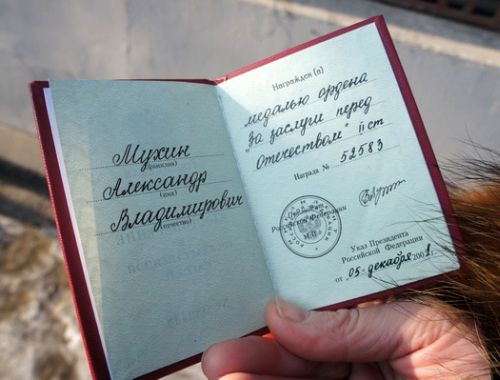 Мухин
(фамилия)
Александр
(имя)
Владимирович
(отчество)
Награжден (а)
медалью ордена
"За заслуги перед
Отечеством" II ст
Награда № 52583
Президент
Российской Федерации
М.П.
Указ Президента
Российской Федерации
от 05 декабря 2001 г.